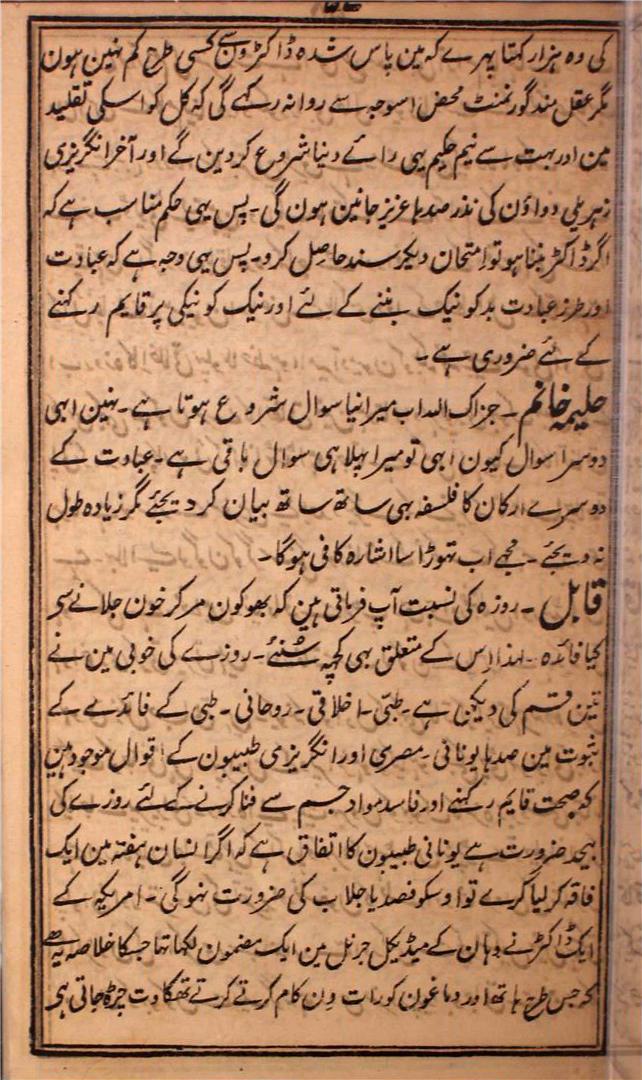 کی وہ ہزار کہتا پہرے کہ مین پاس شدہ ڈاکٹرونسے کسی طرح کم نہین ہون
مگر عقل مند گورنمنٹ محض اسوجہ سے روا نہ رکہے گی کہ کل کو اسکی تقلید
مین اور بہت سے نیم حکیم یہی رائے دینا شروع کردین گے اور آخر انگریزی
زہریلی دواؤن کی نذر صدہا عزیز جانین ہون گی۔ پس یہی حکم مناسب ہے کہ
اگر ڈاکٹر بننا ہو تو اِمتحان دیکر سند حاصِل کرو۔ پس یہی وجہ ہے کہ عبادت
اور طرز عبادت بد کو نیک بننے کے لئے اور نیک کو نیکی پر قایم رکہنے
کے لئے ضروری ہے۔
حلیمہ خانم۔ جزاک اللہ اب میرا نیا سوال شروع ہوتا ہے۔ نہین ابہی
دوسرا سوال کیون ابہی تو میرا پہلا ہی سوال باقی ہے۔ عبادت کے
دوسرے ارکان کا فلسفہ بہی ساتھ ساتھ بیان کر دیجئے مگر زیادہ طول
نہ دیجئے۔ مجہے اب تہوڑا سا اشارہ کافی ہوگا۔
قابل۔ روزہ کی نسبت آپ فرماتی ہین کہ بھوکون مر کر خون جلانے سے
کیا فائدہ۔ لہذا اِس کے متعلق بہی کچہہ سُنئے۔ روزے کی خوبی مین نے
تین قسم کی دیکہی ہے۔ طبّی۔ اخلاقی۔ روحانی۔ طبی کے فائدے کے
ثبوت مین صدہا یونانی۔ مصری اور انگریزی طبیبون کے اقوال موجود ہین
کہ صحت قایم رکہنے اور فاسد مواد جسم سے فنا کرنے کے لئے روزے کی
بیحد ضرورت ہے یونانی طبیبون کا اتفاق ہے کہ اگر انسان ہفتہ مین ایک
فاقہ کر لیا کرے تو اوسکو فصد یا جلاب کی ضرورت نہوگی۔ امریکہ کے
ایک ڈاکٹر نے وہان کے میڈیکل جرنل مین ایک مضمون لکہا تہا جسکا خلاصہ یہ ہے
کہ جس طرح ہاتھ اور دماغون کو رات دن کام کرتے کرتے تھکاوت چڑہ جاتی ہے